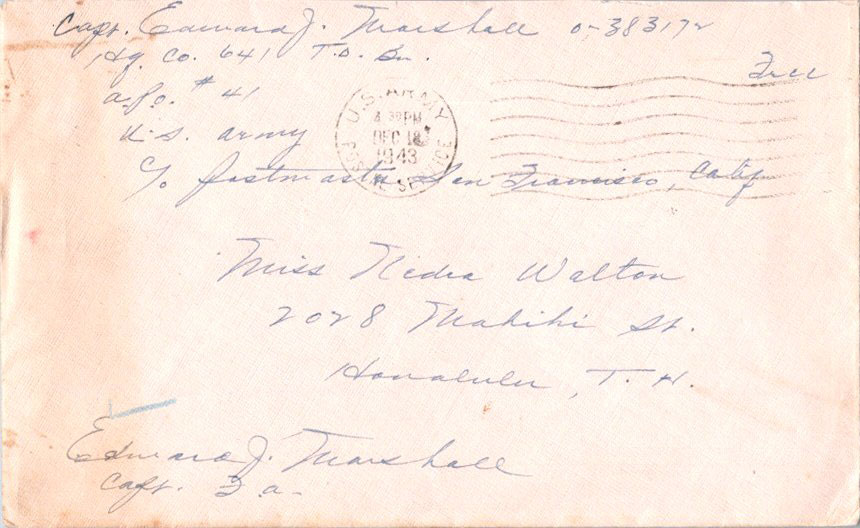 Capt. Edward J. Marshall 0-383172
Hq. Co. 641 T.D. Bn.
Free
a.P.o. # 41
U.S. Army
U.S. ARMY
POSTAL SERVICE
PM
DEC 18
1943
c/o Postmaster San Francisco, Calif
Miss Nedra Walton
2028 Makiki St.
Honolulu, T.H.
Edward J. Marshall
Capt. F.a.